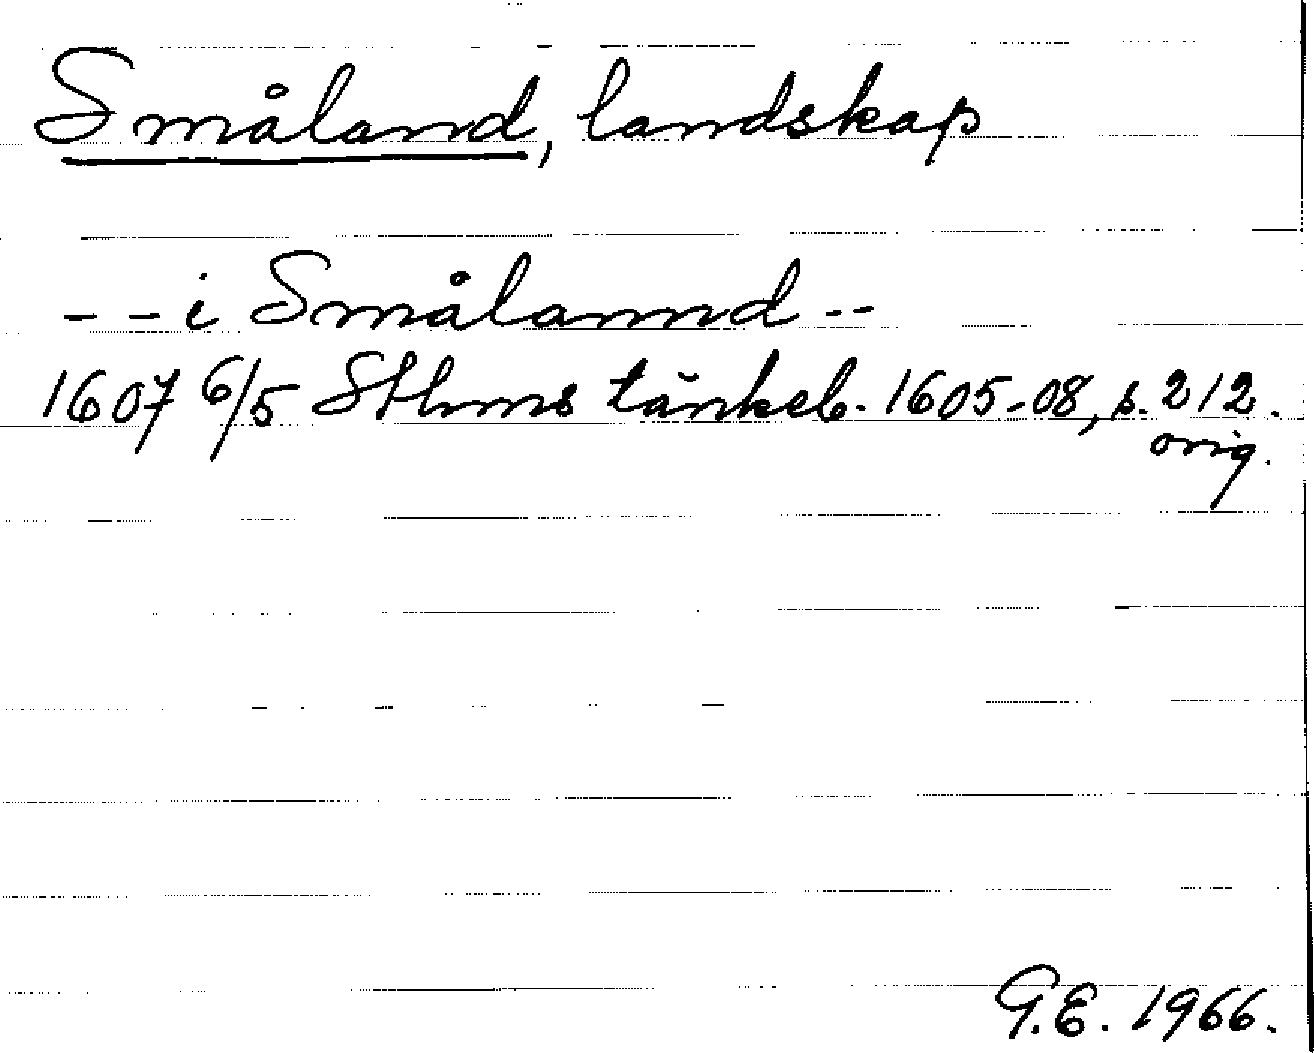 Småland, landskap
- - i Smålannd - -
1607 6/5 Sthms tänkeb. 1605-08, s. 212.
orig.
G.E. 1966.